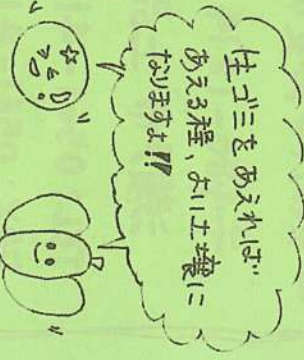 生ゴミをあえれば
あえる程、よい土壌に
なりますよ!!